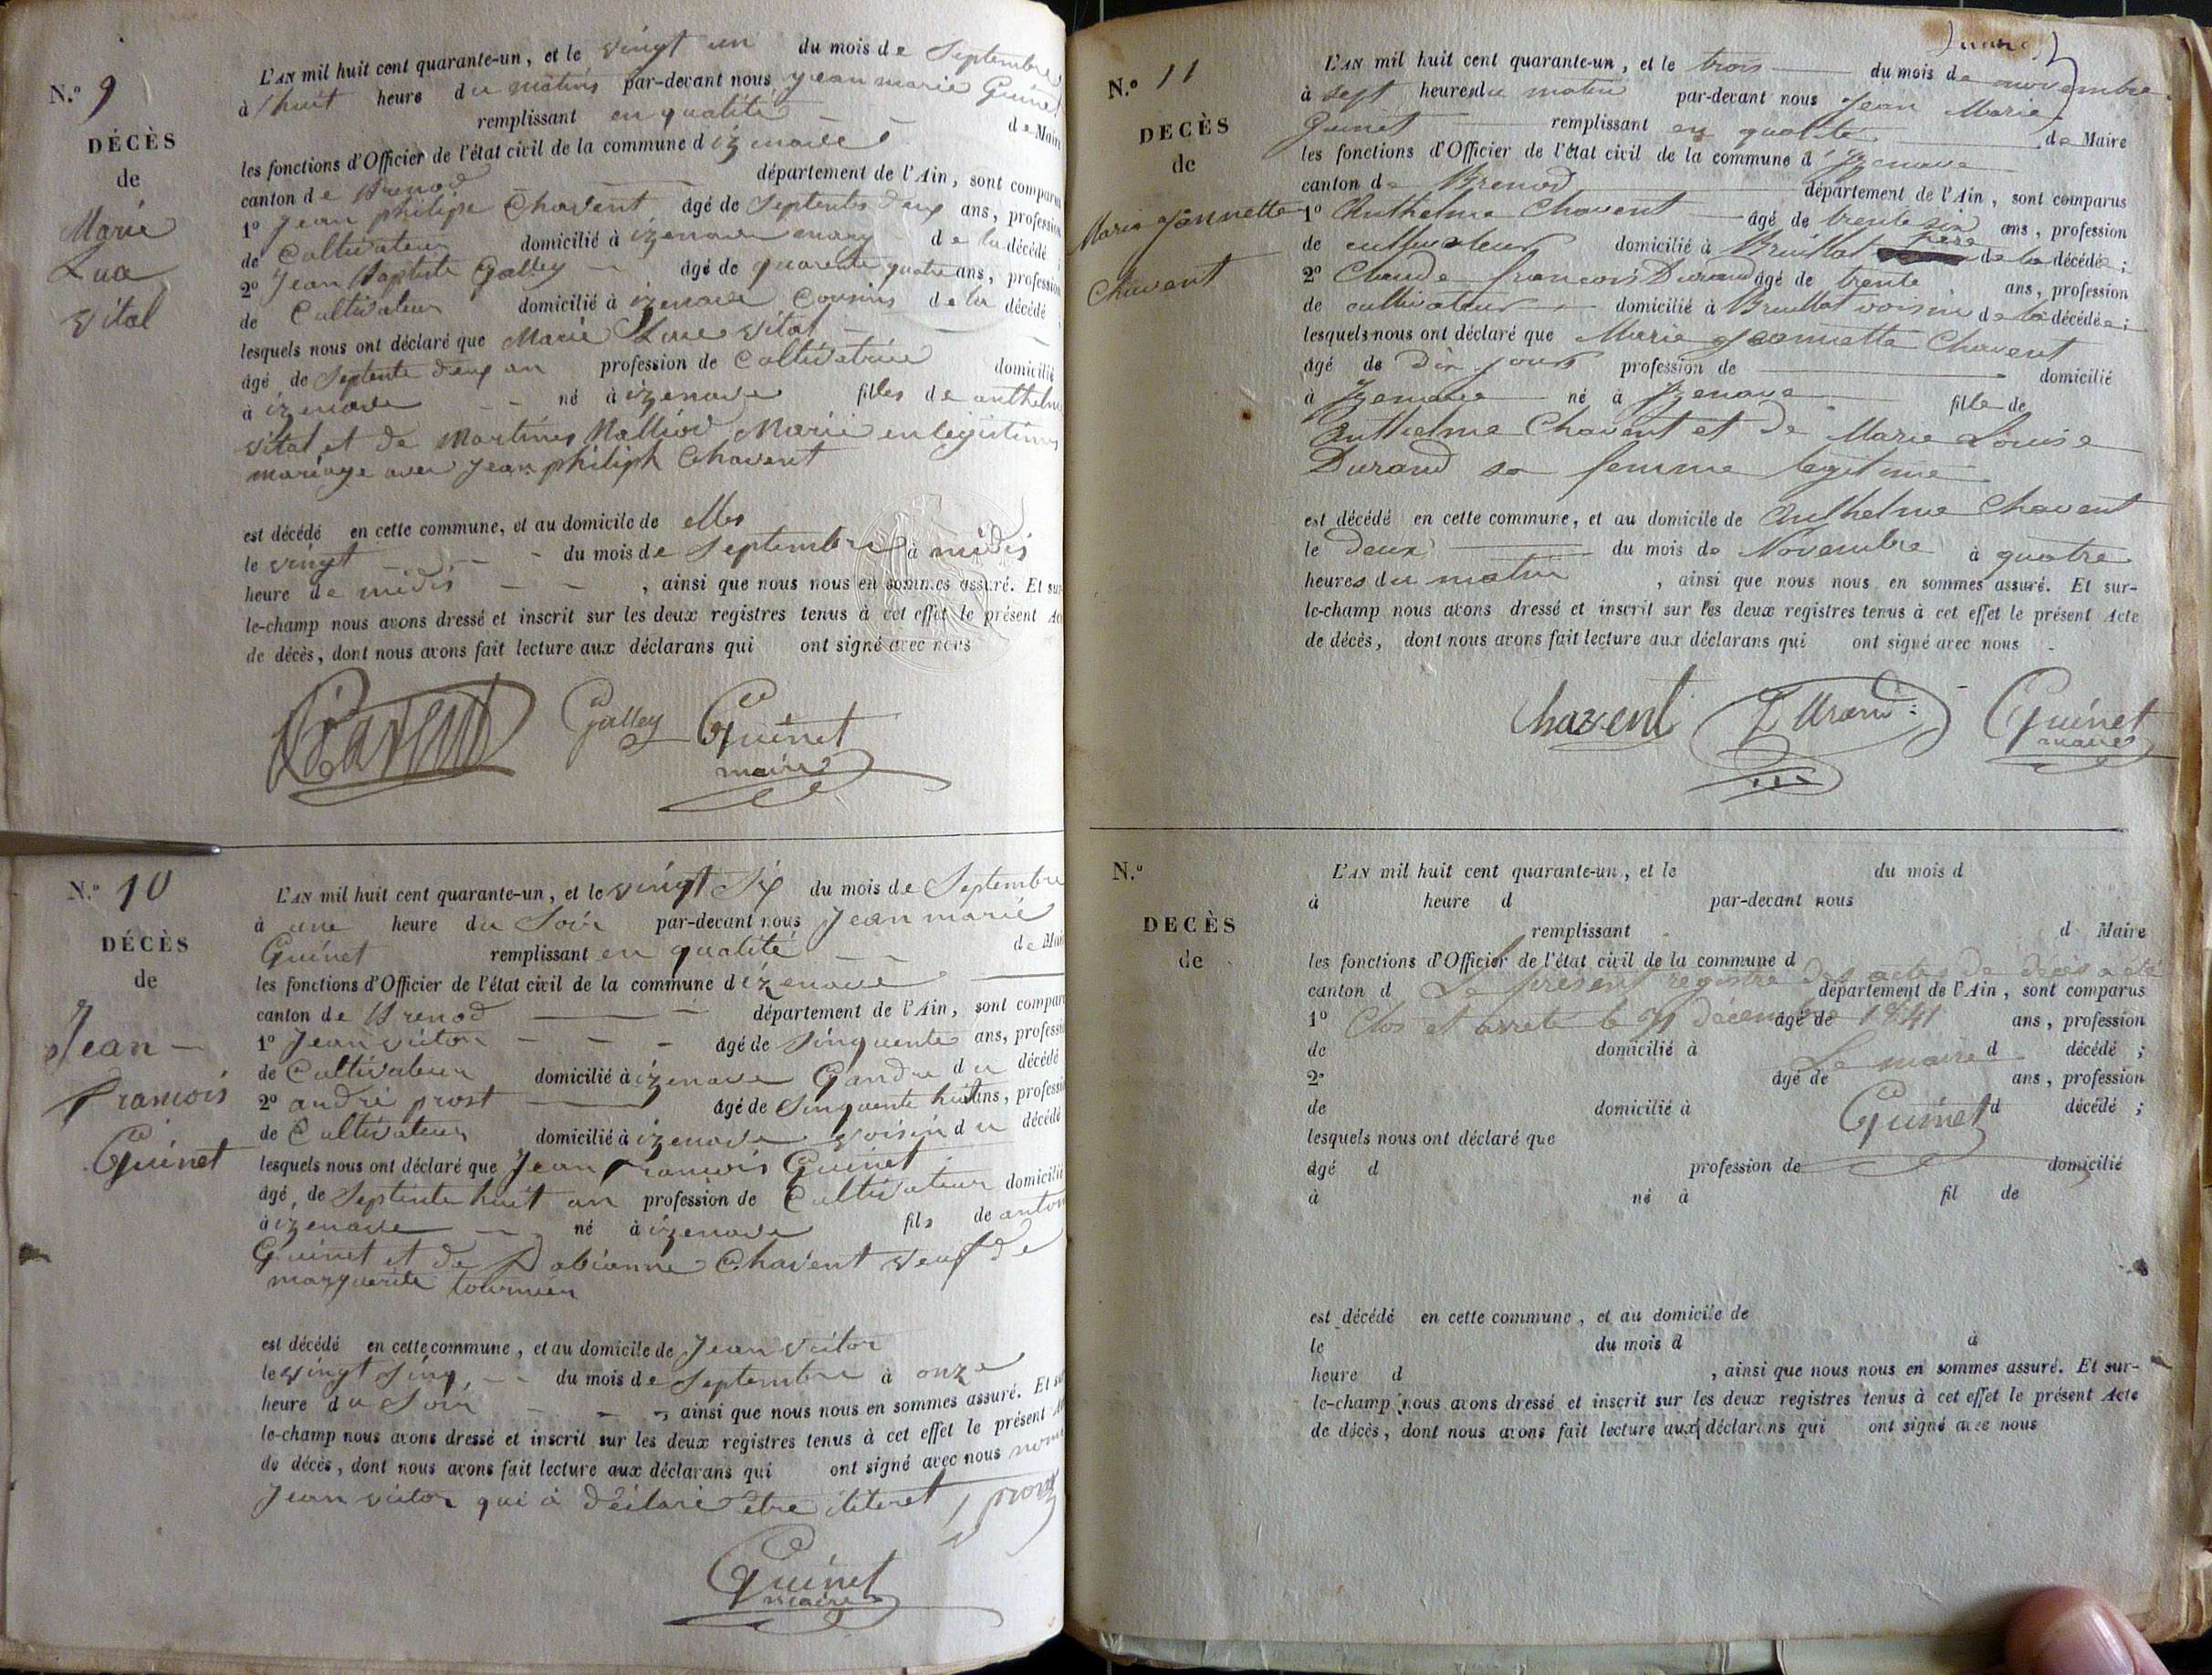 N.º 9
DÉCÈS
de
Marie
Lua
Vital
L'AN mil huit cent quarante-un, et le vingt un du mois de Septembre
à huit heure du matins par-devant nous jean marie Guinet
remplissant en qualité de Maire
les fonctions d'Officier de l'état civil de la commune d izenave
canton de Brenod département de l'Ain, sont comparus
1º Jean philipe Chavent âgé de Septente deux ans, profession
de Cultivateur domicilié à izenave mary de la décédé
2º Jean Baptiste Galley âgé de quarente quatre ans, profession
de Cultivateur domicilié à izenave Cousins de la décédé ;
lesquels nous ont déclaré que Marie Luce Vital
âgé de Septente deux an profession de Cultivatrice domicilié
à izenave né à izenave filles de anthelme
Vital et de Martines Malliod Marie en légitime
mariage avec Jean philiph Chavent
est décédé en cette commune, et au domicile de elles
le vingt du mois de Septembre à midis
heure de midis , ainsi que nous nous en sommes assuré. Et sur-
le-champ nous avons dressé et inscrit sur les deux registres tenus à cet effet le présent Acte
de décès, dont nous avons fait lecture aux déclarans qui ont signé avec nous
Chavent Galley Guinet
maire
N.º 10
DÉCÈS
de
Jean
François
Guinet
L'AN mil huit cent quarante-un, et le vingt Six du mois de Septembre
à une heure du Soir par-devant nous Jean marie
Guinet remplissant en qualité de Maire
les fonctions d'Officier de l'état civil de la commune d izenave
canton de Brenod département de l'Ain, sont comparus
1º Jean victor âgé de Sinquente ans, profession
de Cultivateur domicilié à izenave Gandre du décédé
2º andré prost âgé de Sinquente huit ans, profession
de Cultivateur domicilié à izenave voisin du décédé
lesquels nous ont déclaré que Jean François Guinet
âgé de Septente huit an profession de Cultivateur domicilié
à izenave né à izenave fils de anton
Guinet et de Chavent veuf de
marguerite tournier
est décédé en cette commune, et au domicile de Jean victor
le vingt Sinq du mois de Septembre à onze
heure du Soir , ainsi que nous nous en sommes assuré. Et sur-
le-champ nous avons dressé et inscrit sur les deux registres tenus à cet effet le présent Acte
de décès, dont nous avons fait lecture aux déclarans qui ont signé avec nous nom
Jean victor qui à déclaré être iliteret prost
Guinet
maire
N.º 11
DECÈS
de
Marie Jannette
Chavent
L'AN mil huit cent quarante-un, et le trois du mois de novembre
à sept heures du matin par-devant nous Jean Marie
Guinet remplissant en qualité de Maire
les fonctions d'Officier de l'état civil de la commune d'Izenave
canton de Brenod département de l'Ain, sont comparus
1º Anthelme Chavent âgé de trente six ans, profession
de cultivateur domicilié à Bruillat père de la décédée ;
2º Claude françois Durand âgé de trente ans, profession
de cultivateur domicilié à Bruillat voisin de la décédée ;
lesquels nous ont déclaré que Marie Jeannette Chavent
âgé de Dix jours profession de domicilié
à Izenave né à Izenave fille de
Anthelme Chavent et de Marie Louise
Durand sa femme legitime
est décédé en cette commune, et au domicile de Anthelme Chavent
le deux du mois de Novembre à quatre
heures du matin , ainsi que nous nous en sommes assuré. Et sur-
le-champ nous avons dressé et inscrit sur les deux registres tenus à cet effet le présent Acte
de décès, dont nous avons fait lecture aux déclarans qui ont signé avec nous
Chavent Durand Guinet
maire
N.º
DECÈS
de
L'AN mil huit cent quarante-un, et le du mois d
à heure d par-devant nous
remplissant d Maire
les fonctions d'Officier de l'état civil de la commune d
Le présent registre des actes de décès a été
canton d département de l'Ain, sont comparus
Clos et arreté le 31 décembre 1841
1º âgé de ans, profession
de domicilié à d décédé ;
Le maire
2º âgé de ans, profession
de domicilié à d décédé ;
Guinet
lesquels nous ont déclaré que
âgé d profession de domicilié
à né à fil de
est décédé en cette commune, et au domicile de
le du mois d à
heure d , ainsi que nous nous en sommes assuré. Et sur-
le-champ nous avons dressé et inscrit sur les deux registres tenus à cet effet le présent Acte
de décès, dont nous avons fait lecture aux déclarans qui ont signé avec nous